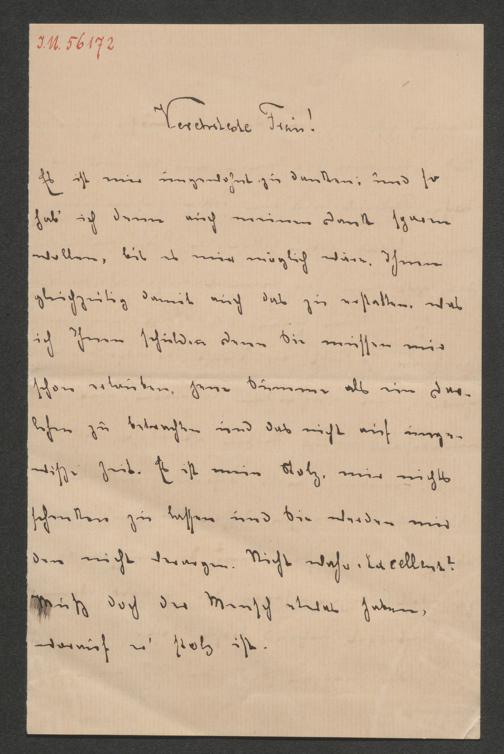 J.N. 56172
Verehrteste Frau!
Es ist mir ungewohnt zu danken; und so
hab' ich denn auch meinen Dank sparen
wollen, bis es mir möglich wäre, Ihnen
gleichzeitig damit auch das zu erstatten, was
ich Ihnen schulde. denn Sie müssen mir
schon erlauben, jene Summe als ein Dar-
lehen zu betrachten und das nicht auf unge-
wisse Zeit. Es ist mein Stolz, mir nichts
schenken zu lassen und Sie werden mir
den nicht verargen. Nicht wahr, Excellenz?
Muß doch der Mensch etwas haben,
worauf er stolz ist.